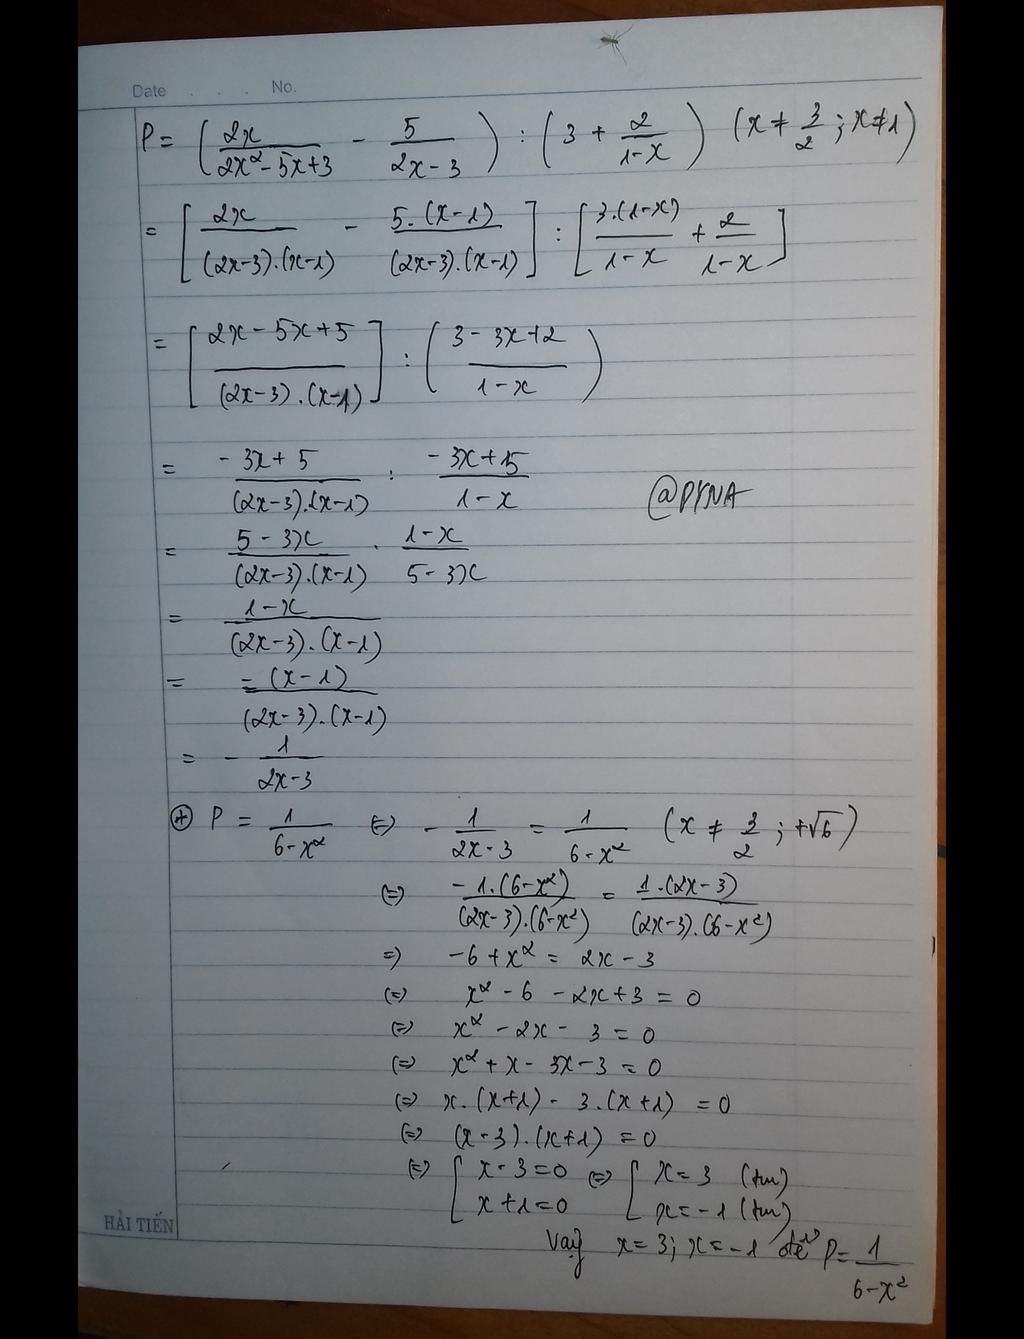 Date . . . No.
P = ( 2x / (2x² - 5x + 3) - 5 / (2x - 3) ) : ( 3 + 2 / (1 - x) ) (x ≠ 3/2 ; x ≠ 1)
= [ 2x / ((2x-3).(x-1)) - 5.(x-1) / ((2x-3).(x-1)) ] : [ 3.(1-x) / (1-x) + 2 / (1-x) ]
= [ (2x - 5x + 5) / ((2x-3).(x-1)) ] : ( (3 - 3x + 2) / (1-x) )
= (-3x + 5) / ((2x-3).(x-1)) : (-3x + 5) / (1-x)
@PYNA
= (5 - 3x) / ((2x-3).(x-1)) . (1-x) / (5 - 3x)
= (1-x) / ((2x-3).(x-1))
= -(x-1) / ((2x-3).(x-1))
= - 1 / (2x-3)
⊕ P = 1 / (6-x²) ⇔ - 1 / (2x-3) = 1 / (6-x²) (x ≠ 3/2 ; ±√6)
⇔ -1.(6-x²) / ((2x-3).(6-x²)) = 1.(2x-3) / ((2x-3).(6-x²))
⇒ -6 + x² = 2x - 3
⇔ x² - 6 - 2x + 3 = 0
⇔ x² - 2x - 3 = 0
⇔ x² + x - 3x - 3 = 0
⇔ x.(x+1) - 3.(x+1) = 0
⇔ (x-3).(x+1) = 0
⇔ [ x - 3 = 0 ⇔ [ x = 3 (tm)
x + 1 = 0 x = -1 (tm)
HẢI TIẾN
Vậy x = 3; x = -1 để P = 1 / (6-x²)